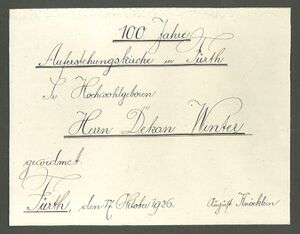 100 Jahre
Auferstehungskirche in Fürth
Sr Hochwohlgeboren
Herrn Dekan Winter
gewidmet
Fürth, den 17 Oktober 1926. August Knöcklein